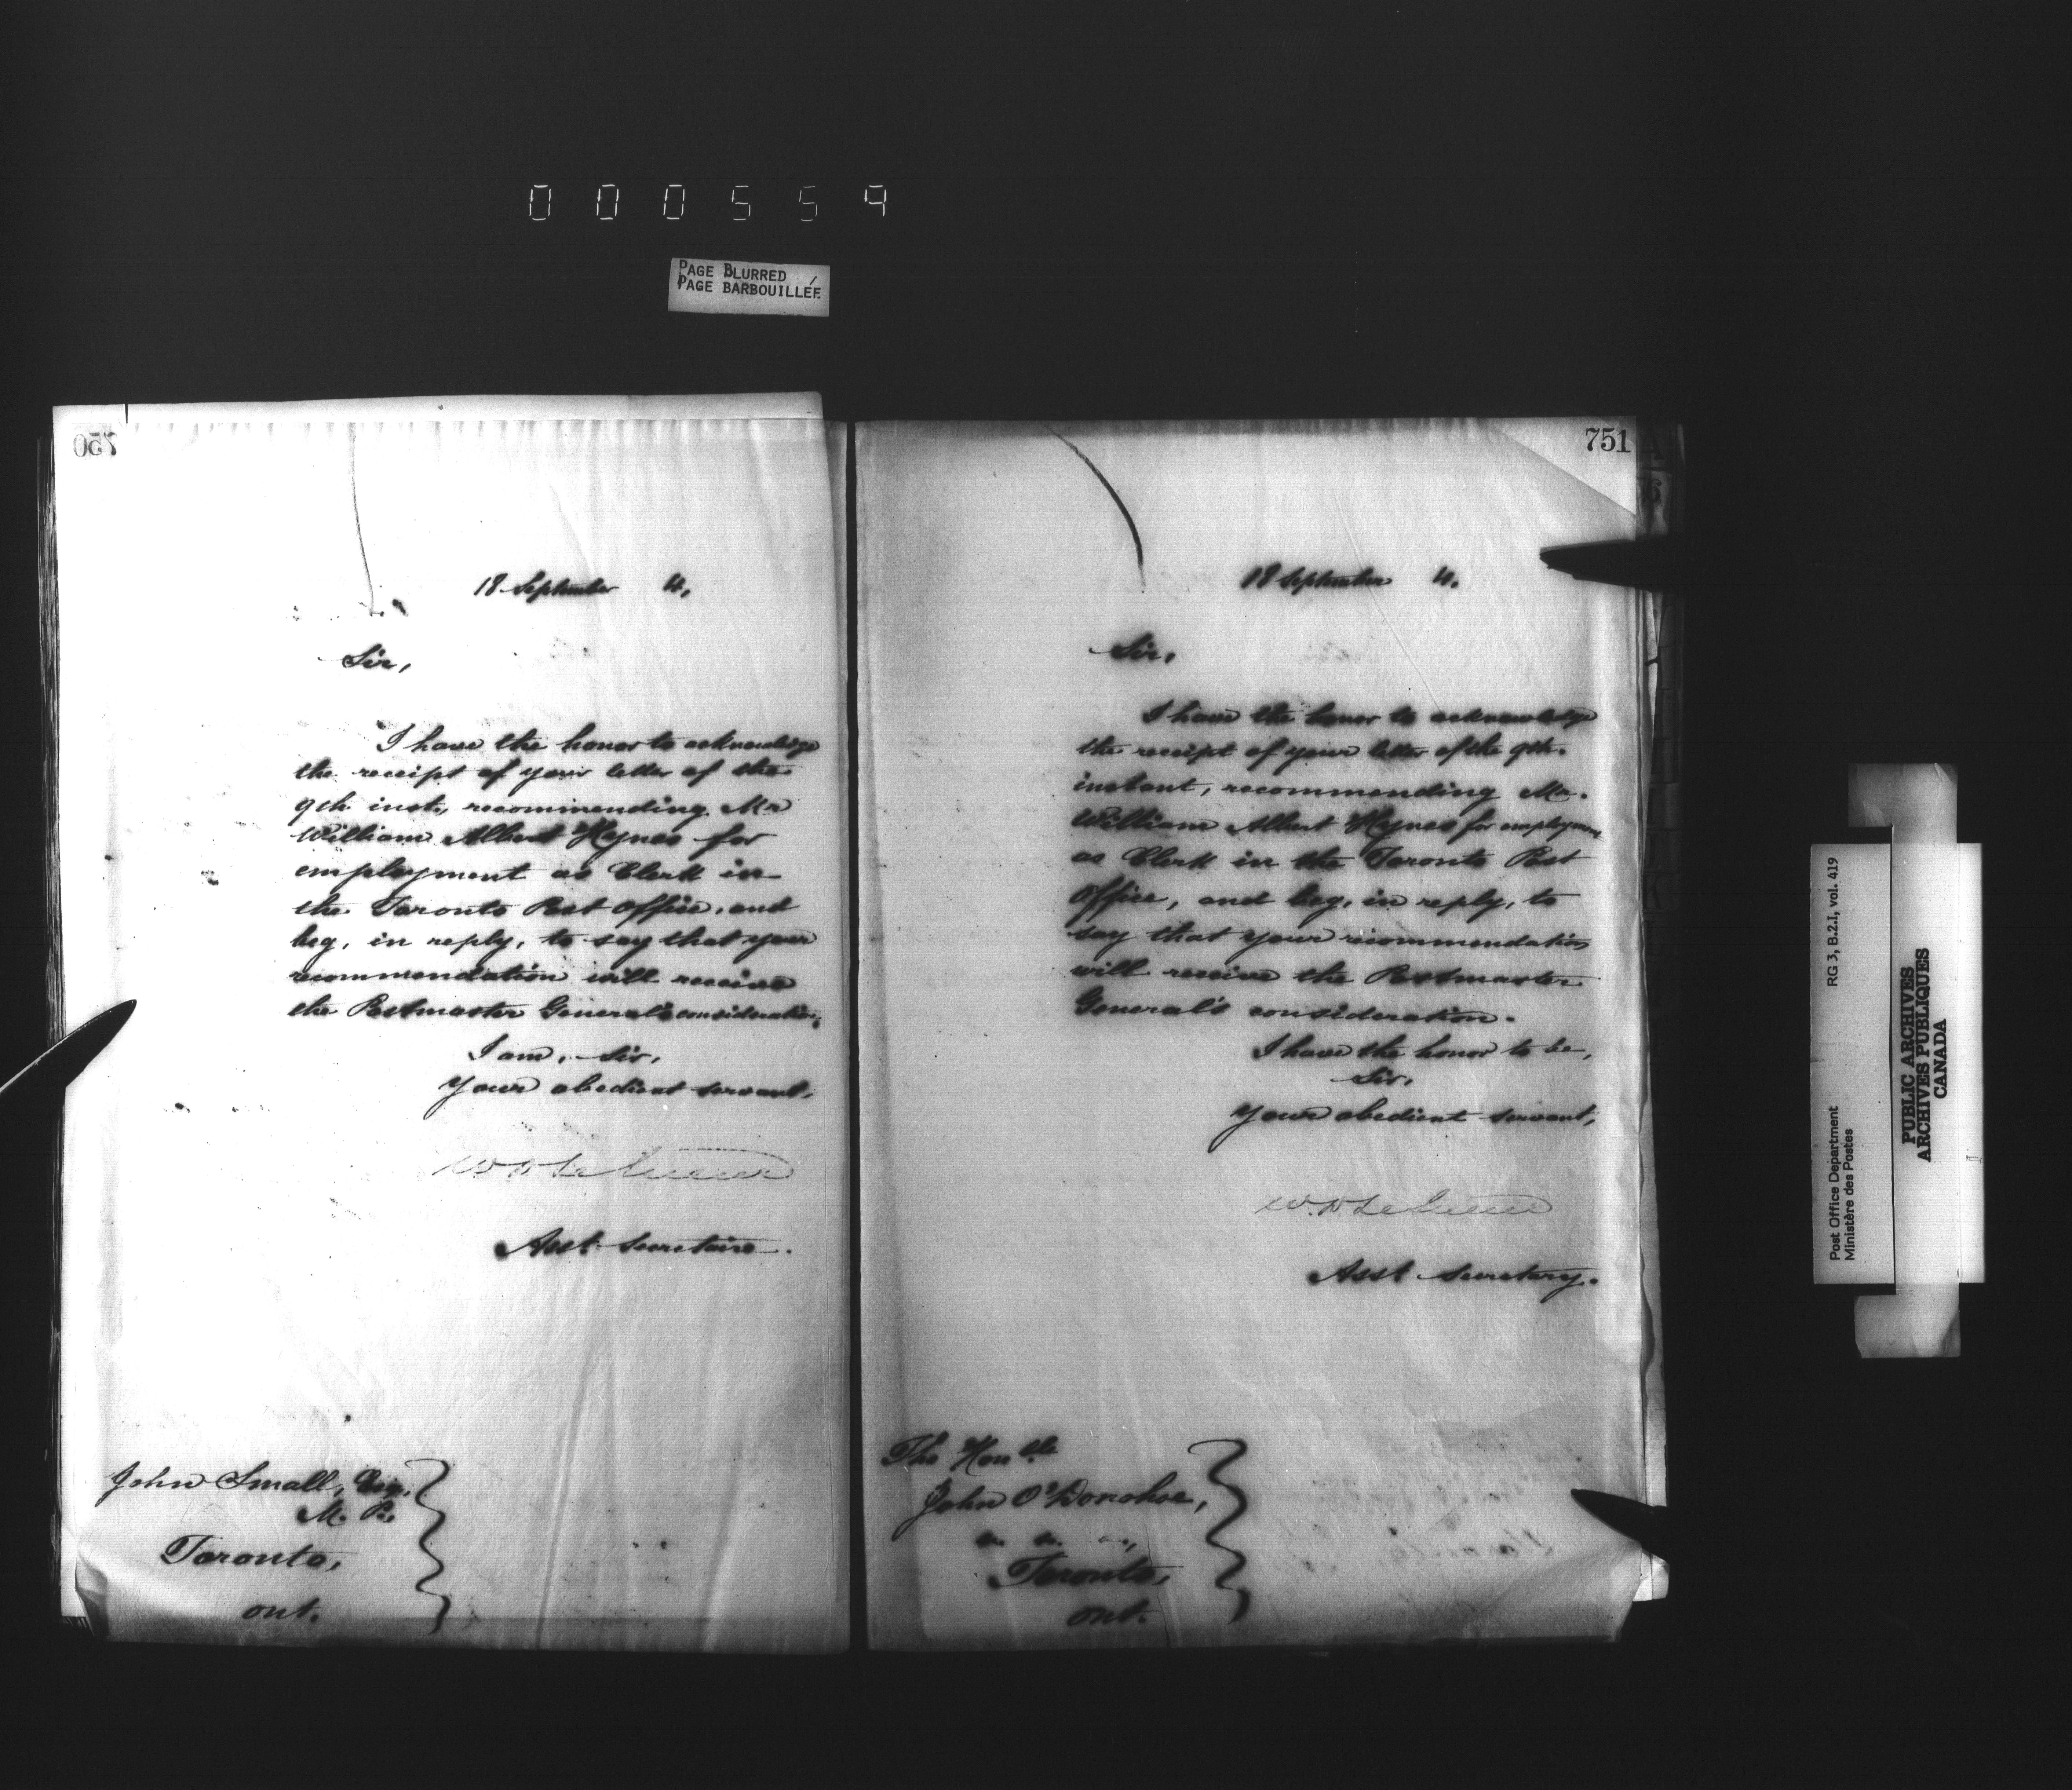 000559
PAGE BLURRED
PAGE BARBOUILLÉE
750
18 September 4,
Sir,
I have the honor to acknowledge
the receipt of your letter of the
9th inst., recommending Mr
William Albert Hynes for
employment as Clerk in
the Toronto Post Office, and
beg, in reply, to say that your
recommendation will receive
the Postmaster General's consideration.
I am, Sir,
Your obedient servant,
Asst. Secretaire.
John Small, Esq.
M. P.
Toronto,
Ont.
751
18 September 4.
Sir,
I have the honor to acknowledge
the receipt of your letter of the 9th.
instant, recommending Mr.
William Albert Hynes for employment
as Clerk in the Toronto Post
Office, and beg, in reply, to
say that your recommendation
will receive the Postmaster
General's consideration.
I have the honor to be,
Sir,
Your obedient servant,
Asst Secretary.
The Honble
John O'Donohoe,
Toronto,
Ont.
Post Office Department
Ministère des Postes
RG 3, B.2.I, vol. 419
PUBLIC ARCHIVES
ARCHIVES PUBLIQUES
CANADA